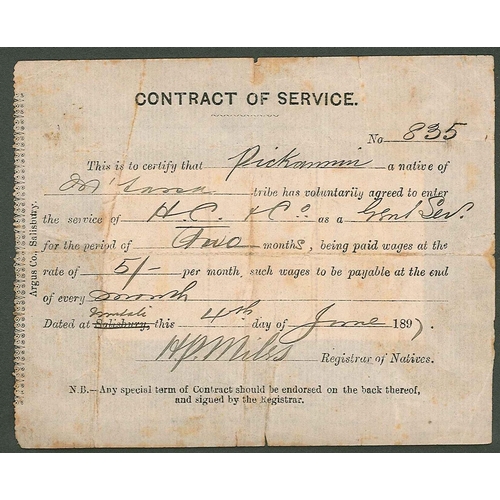 CONTRACT OF SERVICE.
No 835
This is to certify that Pickannin a native of
tribe has voluntarily agreed to enter
the service of H.C. & Co as a Genl Ser.
for the period of Two months, being paid wages at the
rate of 5/- per month, such wages to be payable at the end
of every month
Dated at Salisbury, this 4th day of June 1897.
H.P. Miles Registrar of Natives.
N.B.—Any special term of Contract should be endorsed on the back thereof,
and signed by the Registrar.
Argus Co., Salisbury.